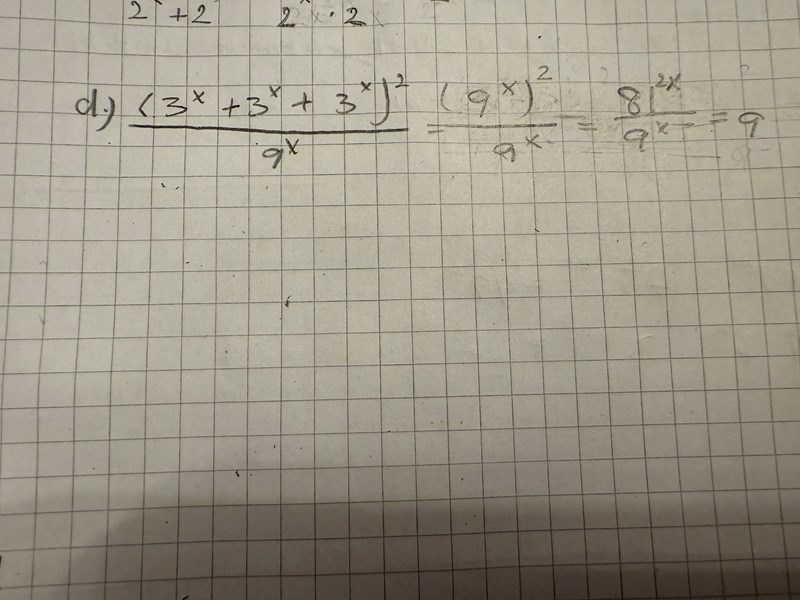 2ˣ + 2 2ˣ · 2
d.) (3ˣ + 3ˣ + 3ˣ)² / 9ˣ = (9ˣ)² / 9ˣ = 81²ˣ / 9ˣ = 9